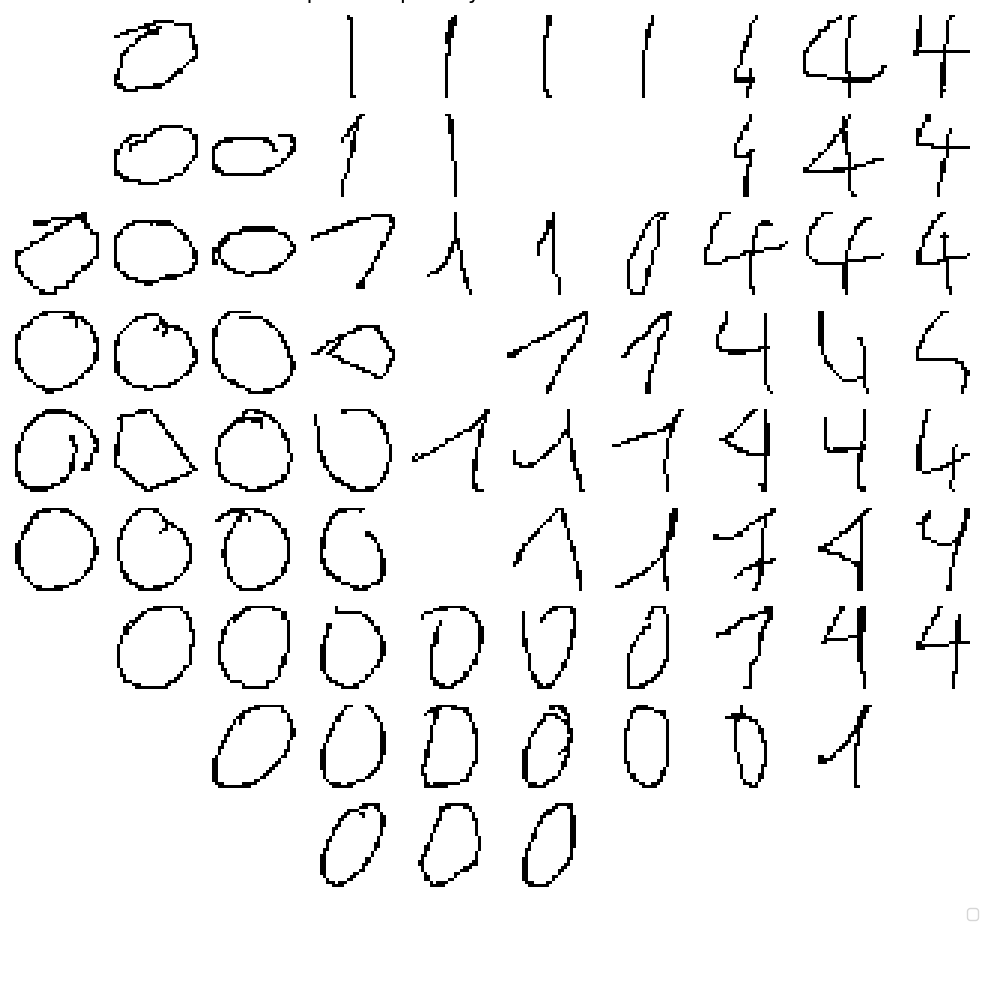 0 1 1 1 1 4 4 4
0 0 1 1 4 4 4
0 0 0 1 1 1 0 4 4 4
0 0 0 0 1 1 4 4 5
0 0 0 0 1 1 1 4 4 4
0 0 0 0 1 1 7 4 4
0 0 0 0 0 0 1 4 4
0 0 0 0 0 0 1
0 0 0